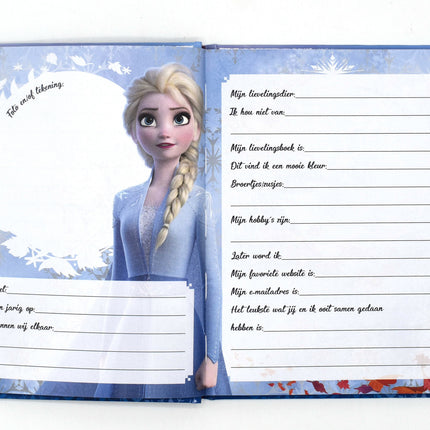 Foto en/of tekening:
et:
n jarig op:
nnen wij elkaar:
Mijn lievelingsdier:
Ik hou niet van:
Mijn lievelingsboek is:
Dit vind ik een mooie kleur:
Broertjes/zusjes:
Mijn hobby's zijn:
Later word ik
Mijn favoriete website is:
Mijn e.mailadres is:
Het leukste wat jij en ik ooit samen gedaan
hebben is: